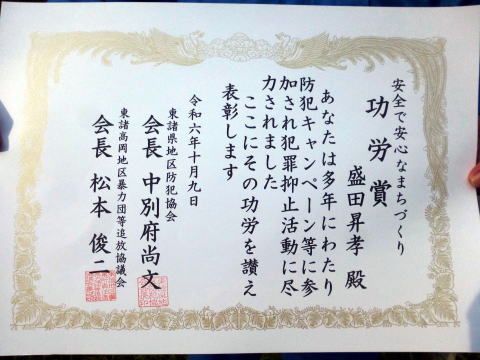 安全で安心なまちづくり
功労賞
盛田昇孝 殿
あなたは多年にわたり
防犯キャンペーン等に参
加され犯罪抑止活動に尽
力されました
ここにその功労を讃え
表彰します
令和六年十月九日
東諸県地区防犯協会
会長 中別府尚文
東諸高岡地区暴力団等追放協議会
会長 松本俊二